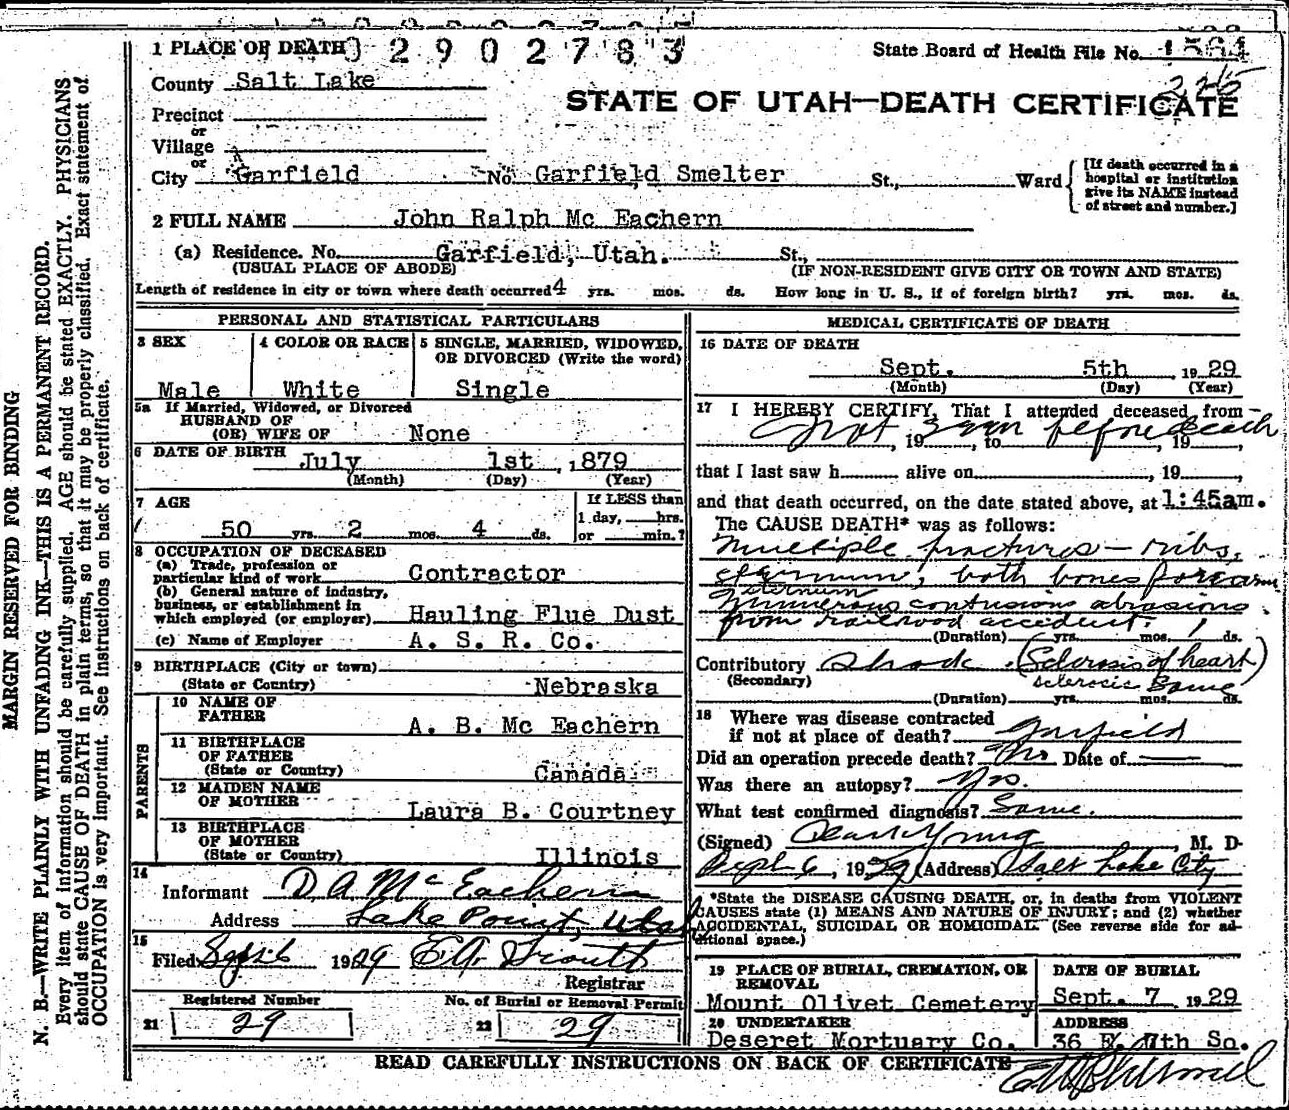 1 PLACE OF DEATH 02902783 State Board of Health File No. 1564
County Salt Lake 225
STATE OF UTAH—DEATH CERTIFICATE
Precinct
or
Village
or
City Garfield No. Garfield Smelter St., Ward
[If death occurred in a hospital or institution give its NAME instead of street and number.]
2 FULL NAME John Ralph Mc Eachern
(a) Residence. No. Garfield, Utah. St.,
(USUAL PLACE OF ABODE) (IF NON-RESIDENT GIVE CITY OR TOWN AND STATE)
Length of residence in city or town where death occurred 4 yrs. mos. ds. How long in U. S., if of foreign birth? yrs. mos. ds.
PERSONAL AND STATISTICAL PARTICULARS
3 SEX
Male
4 COLOR OR RACE
White
5 SINGLE, MARRIED, WIDOWED,
OR DIVORCED (Write the word)
Single
5a If Married, Widowed, or Divorced
HUSBAND OF
(OR) WIFE OF None
6 DATE OF BIRTH July 1st, 1879
(Month) (Day) (Year)
7 AGE
50 yrs. 2 mos. 4 ds.
If LESS than
1 day, hrs.
or min.?
8 OCCUPATION OF DECEASED
(a) Trade, profession or
particular kind of work Contractor
(b) General nature of industry,
business, or establishment in
which employed (or employer) Hauling Flue Dust
(c) Name of Employer A. S. R. Co.
9 BIRTHPLACE (City or town)
(State or Country) Nebraska
PARENTS
10 NAME OF
FATHER A. B. Mc Eachern
11 BIRTHPLACE
OF FATHER
(State or Country) Canada
12 MAIDEN NAME
OF MOTHER Laura B. Courtney
13 BIRTHPLACE
OF MOTHER
(State or Country) Illinois
14
Informant D. A. McEachern
Address Lake Point, Utah
15
Filed Sept 6 1929
Registrar
Registered Number
21 29
No. of Burial or Removal Permit
22 29
MEDICAL CERTIFICATE OF DEATH
16 DATE OF DEATH
Sept. 5th, 1929
(Month) (Day) (Year)
17 I HEREBY CERTIFY, That I attended deceased from
Not, 19 seen to before death 19
that I last saw h alive on, 19
and that death occurred, on the date stated above, at 1:45am.
The CAUSE DEATH* was as follows:
Multiple fractures - ribs,
sternum, both bones forearm
sternum
numerous contusions abrasions
from railroad accident.
(Duration) yrs. mos. ds.
Contributory Shock (Sclerosis of heart)
(Secondary) sclerosis
(Duration) yrs. mos. ds.
18 Where was disease contracted
if not at place of death? Garfield
Did an operation precede death? No Date of
Was there an autopsy? Yes.
What test confirmed diagnosis? Same.
(Signed) Young, M. D.
Sept 6, 1929 (Address) Salt Lake City
*State the DISEASE CAUSING DEATH, or, in deaths from VIOLENT
CAUSES state (1) MEANS AND NATURE OF INJURY; and (2) whether
ACCIDENTAL, SUICIDAL OR HOMICIDAL. (See reverse side for ad-
ditional space.)
19 PLACE OF BURIAL, CREMATION, OR
REMOVAL
Mount Olivet Cemetery
DATE OF BURIAL
Sept. 7 1929
20 UNDERTAKER
Deseret Mortuary Co.
ADDRESS
36 E. 7th So.
READ CAREFULLY INSTRUCTIONS ON BACK OF CERTIFICATE
MARGIN RESERVED FOR BINDING
N. B.—WRITE PLAINLY WITH UNFADING INK—THIS IS A PERMANENT RECORD.
Every item of information should be carefully supplied. AGE should be stated EXACTLY. PHYSICIANS
should state CAUSE OF DEATH in plain terms, so that it may be properly classified. Exact statement of
OCCUPATION is very important. See instructions on back of certificate.